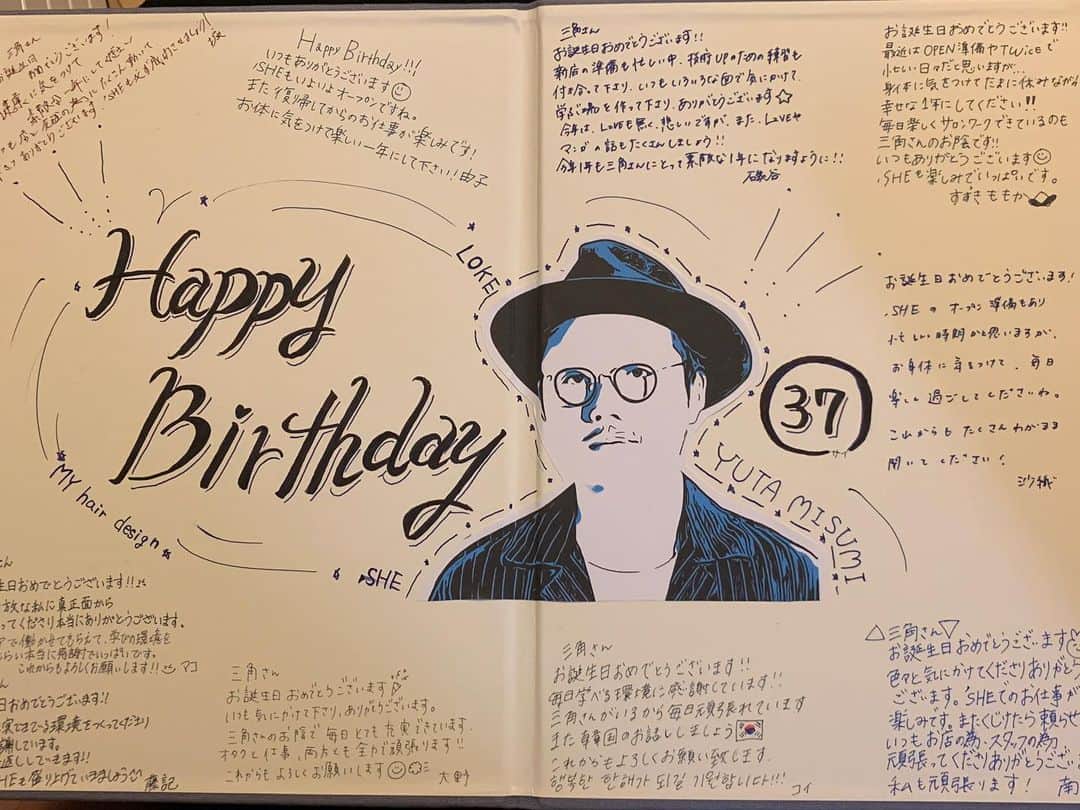 三角さん
お誕生日
Happy Birthday!!!
いつもありがとうございます
SHEもいよいよオープンですね。
また復帰してからのお仕事が楽しみです!
お体に気をつけて楽しい一年にして下さい! 由子
三角さん
お誕生日おめでとうございます!!
新店の準備も忙しい中、技術UPのための練習も
付き合って下さり、いつもいろいろな面で気にかけて、
学ぶ場を作って下さり、ありがとうございます☆
今年は、LOVEも無く、悲しいですが、また、LOVEや
マンガの話もたくさんしましょう!!
今年1年も三角さんにとって素敵な1年になりますように!!
お誕生日おめでとうございます!!
最近はOPEN準備やTwiceで
忙しい日々だと思いますが…
身体に気をつけてたまに休みながら
幸せな1年にしてください!!
毎日楽しくサロンワークできているのも
三角さんのお陰です!!
いつもありがとうございます
SHEも楽しみでいっぱいです。
すずきももか
Happy
Birthday
LOKE
MY hair design
SHE
37
YUTA MISUMI
お誕生日おめでとうございます!
SHEの オープン準備もあり
忙しい時期かと思いますが、
お身体に気をつけて、毎日
楽しく過ごしてくださいね。
これからも たくさんわがまま
聞いてください!
さん
生日おめでとうございます!!♪
放な私に真正面から
ってくださり本当にありがとうございます。
で働かせてもらえて、学びの環境を
らい本当に感謝でいっぱいです。
これからもよろしくお願いします!! マコ
さん
日おめでとうございます!!
実できる環境をつくってくださり
謝しています。
返ししていきます!!
HEも盛り上げていきましょう
三角さん
お誕生日おめでとうございます
いつも気にかけて下さり、ありがとうございます。
三角さんのお陰で毎日とても充実できています。
オタクと仕事、両方とも全力で頑張ります!!
これからもよろしくお願いします
大野
三角さん
お誕生日おめでとうございます!!
毎日学べる環境に感謝しています!!
三角さんがいるから毎日頑張れています
また韓国のお話ししましょう
これからもよろしくお願い致します
행복한 한해가 되길 기원합니다!!!
コイ
△三角さん▽
お誕生日おめでとうございます
色々と気にかけてくださりありがとう
ございます。SHEでのお仕事が
楽しみです。またくじけたら頼らせ
いつもお店の為、スタッフの為
頑張ってくださりありがとうござい
私も頑張ります! 南